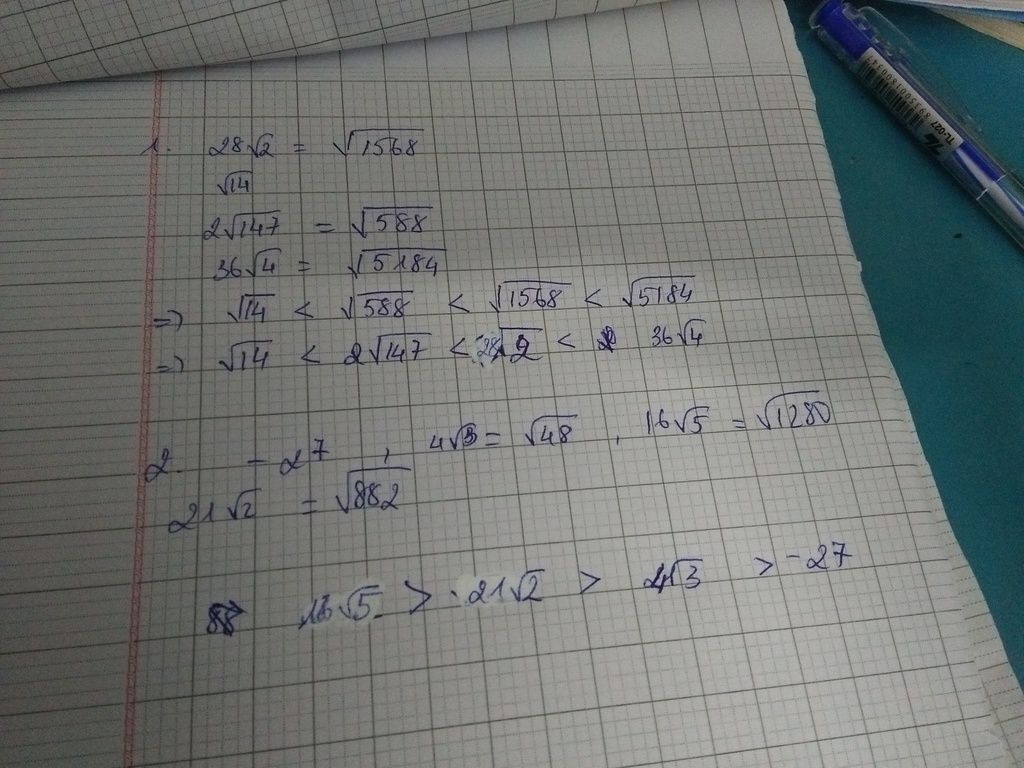 1. 28√2 = √1568
√14
2√147 = √588
36√4 = √5184
=> √14 < √588 < √1568 < √5184
=> √14 < 2√147 < 28√2 < 36√4
2. - 27 , 4√3 = √48 , 16√5 = √1280
21√2 = √882
16√5 > 21√2 > 4√3 > -27
TL-027